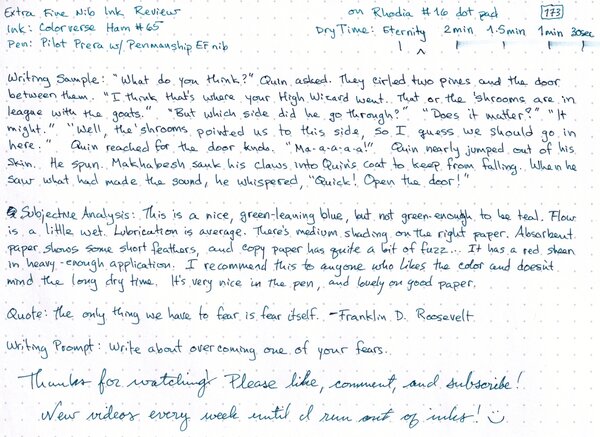 Extra Fine Nib Ink Review on Rhodia #16 dot pad 173
Ink: Colorverse Ham #65 Dry Time: Eternity 2min 1.5min 1min 30sec
Pen: Pilot Prera w/ Penmanship EF nib
Writing Sample: "What do you think?" Quin asked. They cirled two pines and the door
between them. "I think that's where your High Wizard went. That or the 'shrooms are in
league with the goats." "But which side did he go through?" "Does it matter?" "It
might." "Well, the 'shrooms pointed us to this side, so I guess we should go in
here." Quin reached for the door knob. "Ma-a-a-a-a!" Quin nearly jumped out of his
skin. He spun. Makhabesh sank his claws into Quin's coat to keep from falling. When he
saw what had made the sound, he whispered, "Quick! Open the door!"
Subjective Analysis: This is a nice, green-leaning blue, but not green-enough to be teal. Flow
is a little wet. Lubrication is average. There's medium shading on the right paper. Absorbent
paper shows some short feathers, and copy paper has quite a bit of fuzz... It has a red sheen
in heavy-enough application. I recommend this to anyone who likes the color and doesn't
mind the long dry time. It's very nice in the pen, and lovely on good paper.
Quote: The only thing we have to fear is fear itself. -Franklin D. Roosevelt
Writing Prompt: Write about overcoming one of your fears.
Thanks for watching! Please like, comment, and subscribe!
New videos every week until I run out of inks!